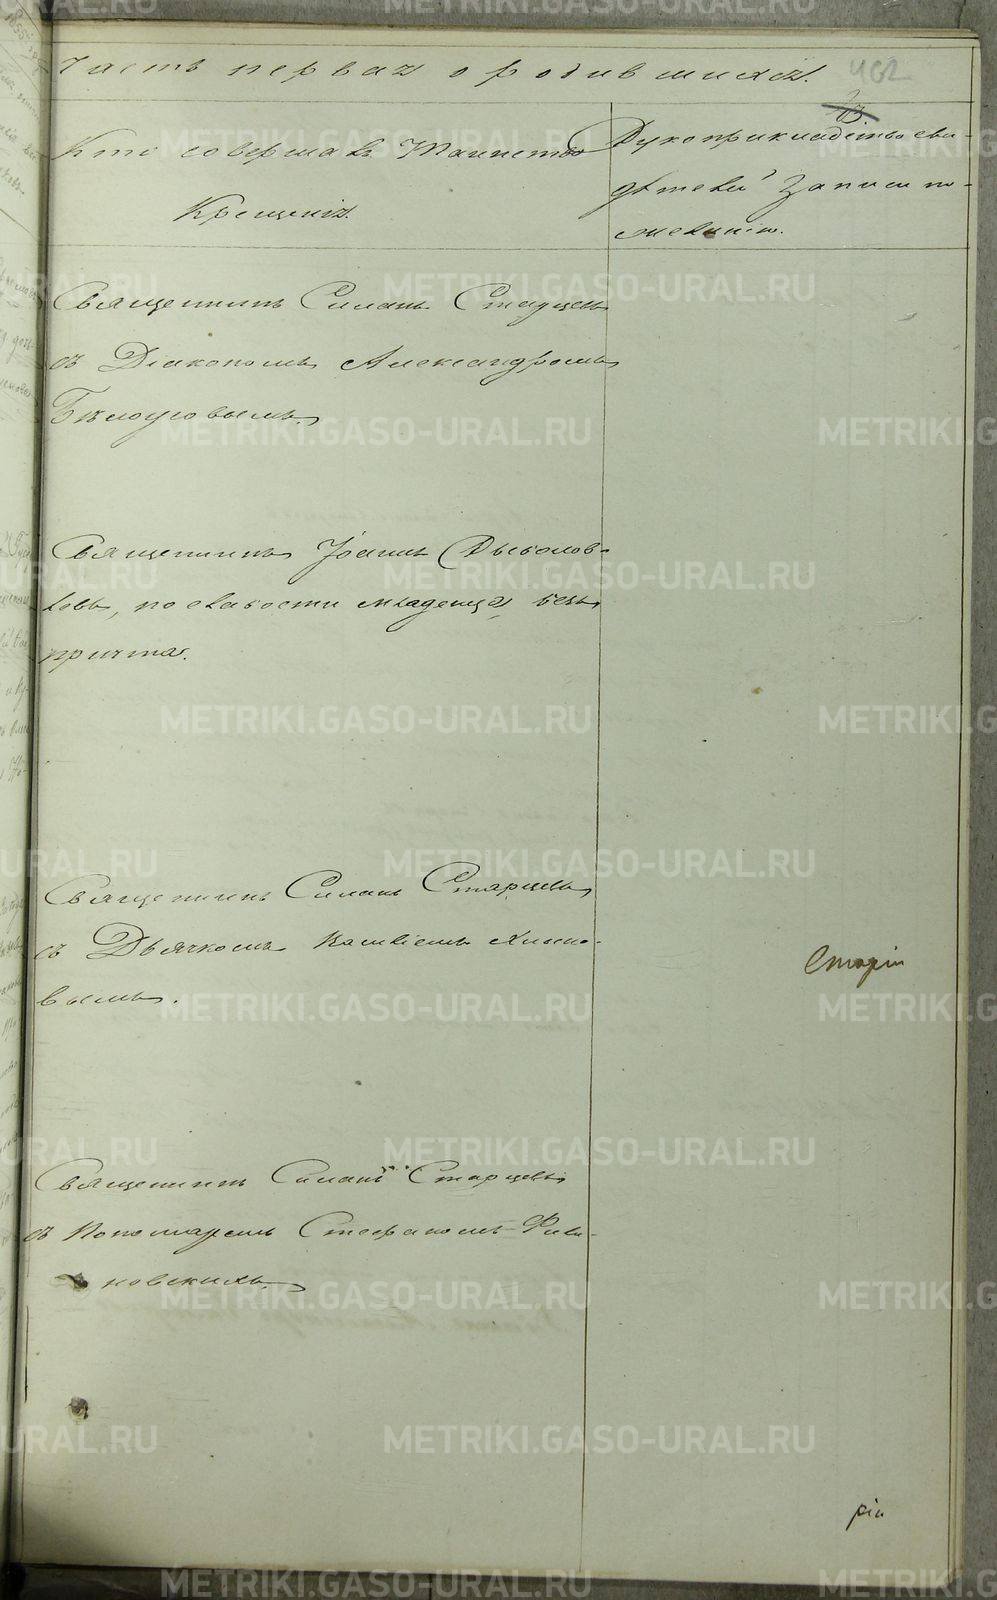 Часть первая о родившихся.
462
Кто совершалъ Таинство
Крещенія.
Рукоприкладство сви-
дѣтелей записи по
желанію.
Священникъ Силанъ Старцевъ
съ Діакономъ Александромъ
Бѣлоусовымъ.
Священникъ Іоаннъ Рыболов-
ковъ, по слабости младенца, безъ
причта.
Священникъ Силанъ Старцевъ
съ Дьячкомъ Василіемъ
вымъ.
Священникъ Силанъ Старцевъ
съ Пономаремъ Стефаномъ
новскимъ.
ріи
METRIKI.GASO-URAL.RU